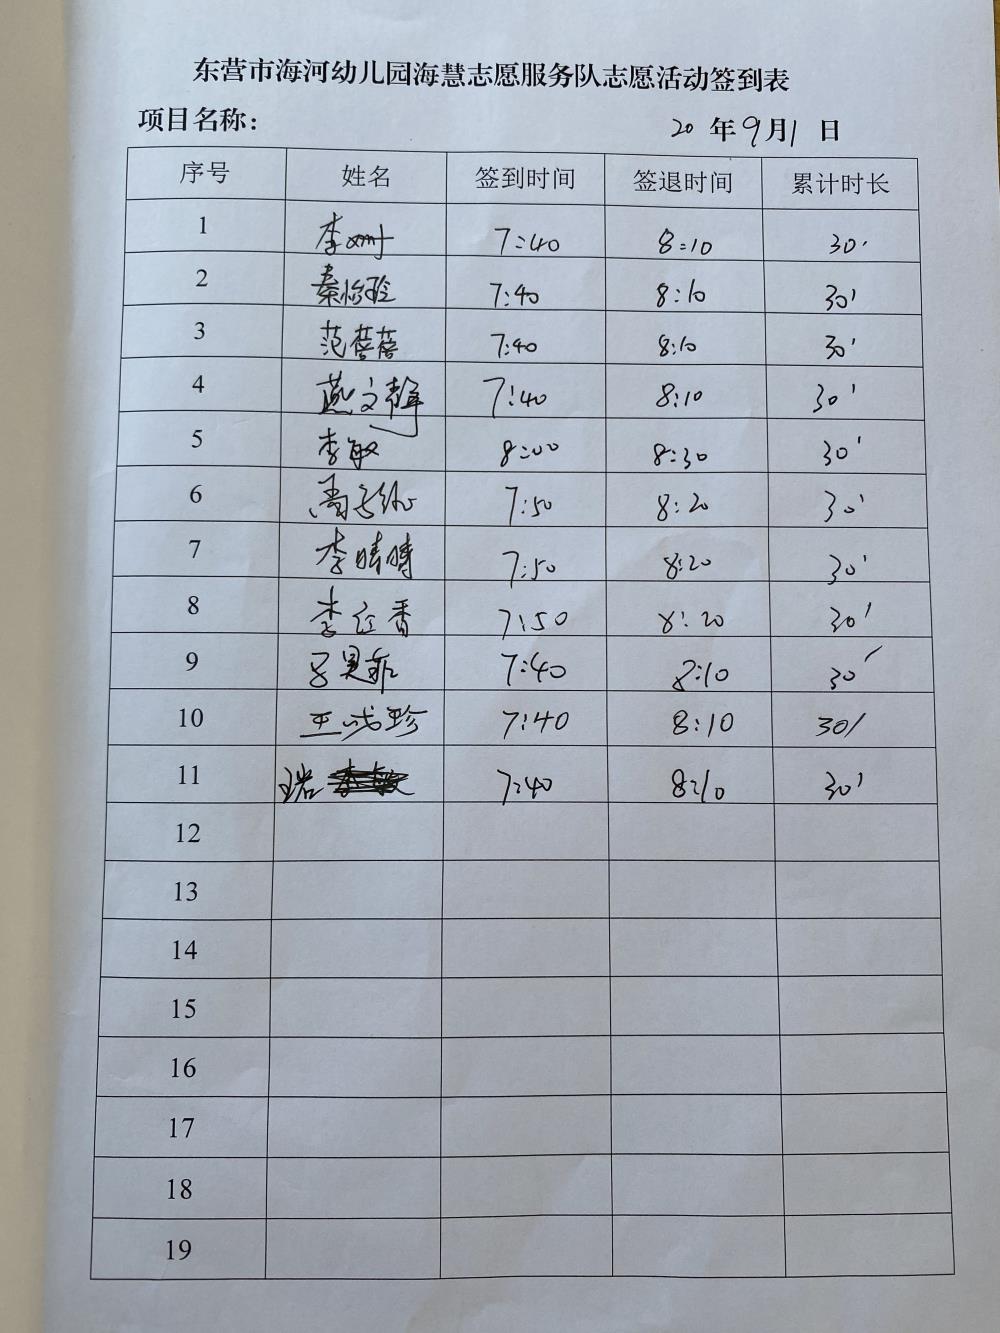 东营市海河幼儿园海慧志愿服务队志愿活动签到表
项目名称： 20 年 9 月 1 日
序号 姓名 签到时间 签退时间 累计时长
1 李 7:40 8:10 30'
2 秦怡玲 7:40 8:10 30'
3 范蓓蓓 7:40 8:10 30'
4 燕文 7:40 8:10 30'
5 李敏 8:00 8:30 30'
6 7:50 8:20 30'
7 李晴晴 7:50 8:20 30'
8 李红香 7:50 8:20 30'
9 7:40 8:10 30'
10 王成珍 7:40 8:10 30'
11 7:40 8:10 30'
12
13
14
15
16
17
18
19